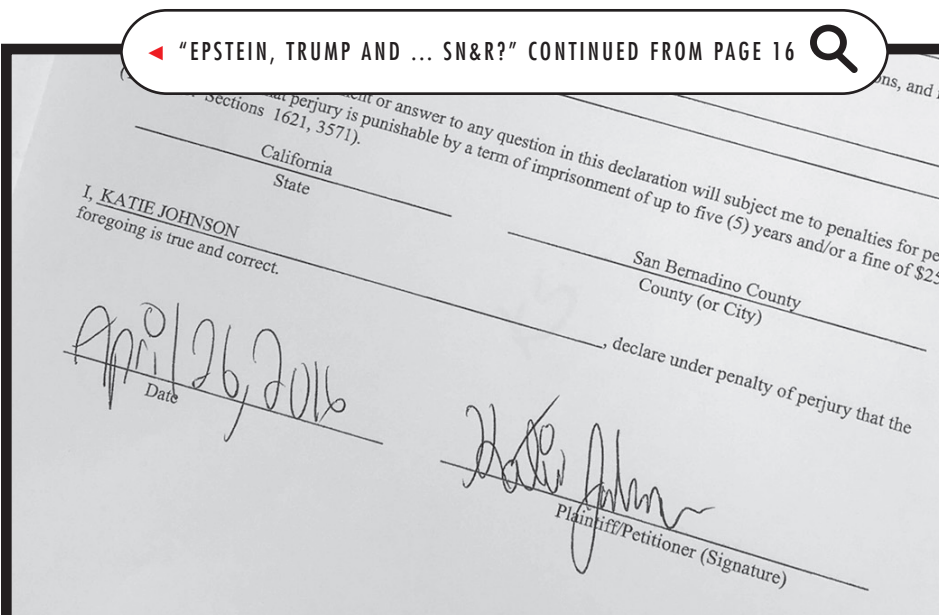 "EPSTEIN, TRUMP AND ... SN&R?" CONTINUED FROM PAGE 16
ons, and
or answer to any question in this declaration will subject me to penalties for pe
perjury is punishable by a term of imprisonment of up to five (5) years and/or a fine of $25
Sections 1621, 3571).
California
State
San Bernadino County
County (or City)
I, KATIE JOHNSON, declare under penalty of perjury that the
foregoing is true and correct.
April 26, 2016
Date
Katie Johnson
Plaintiff/Petitioner (Signature)